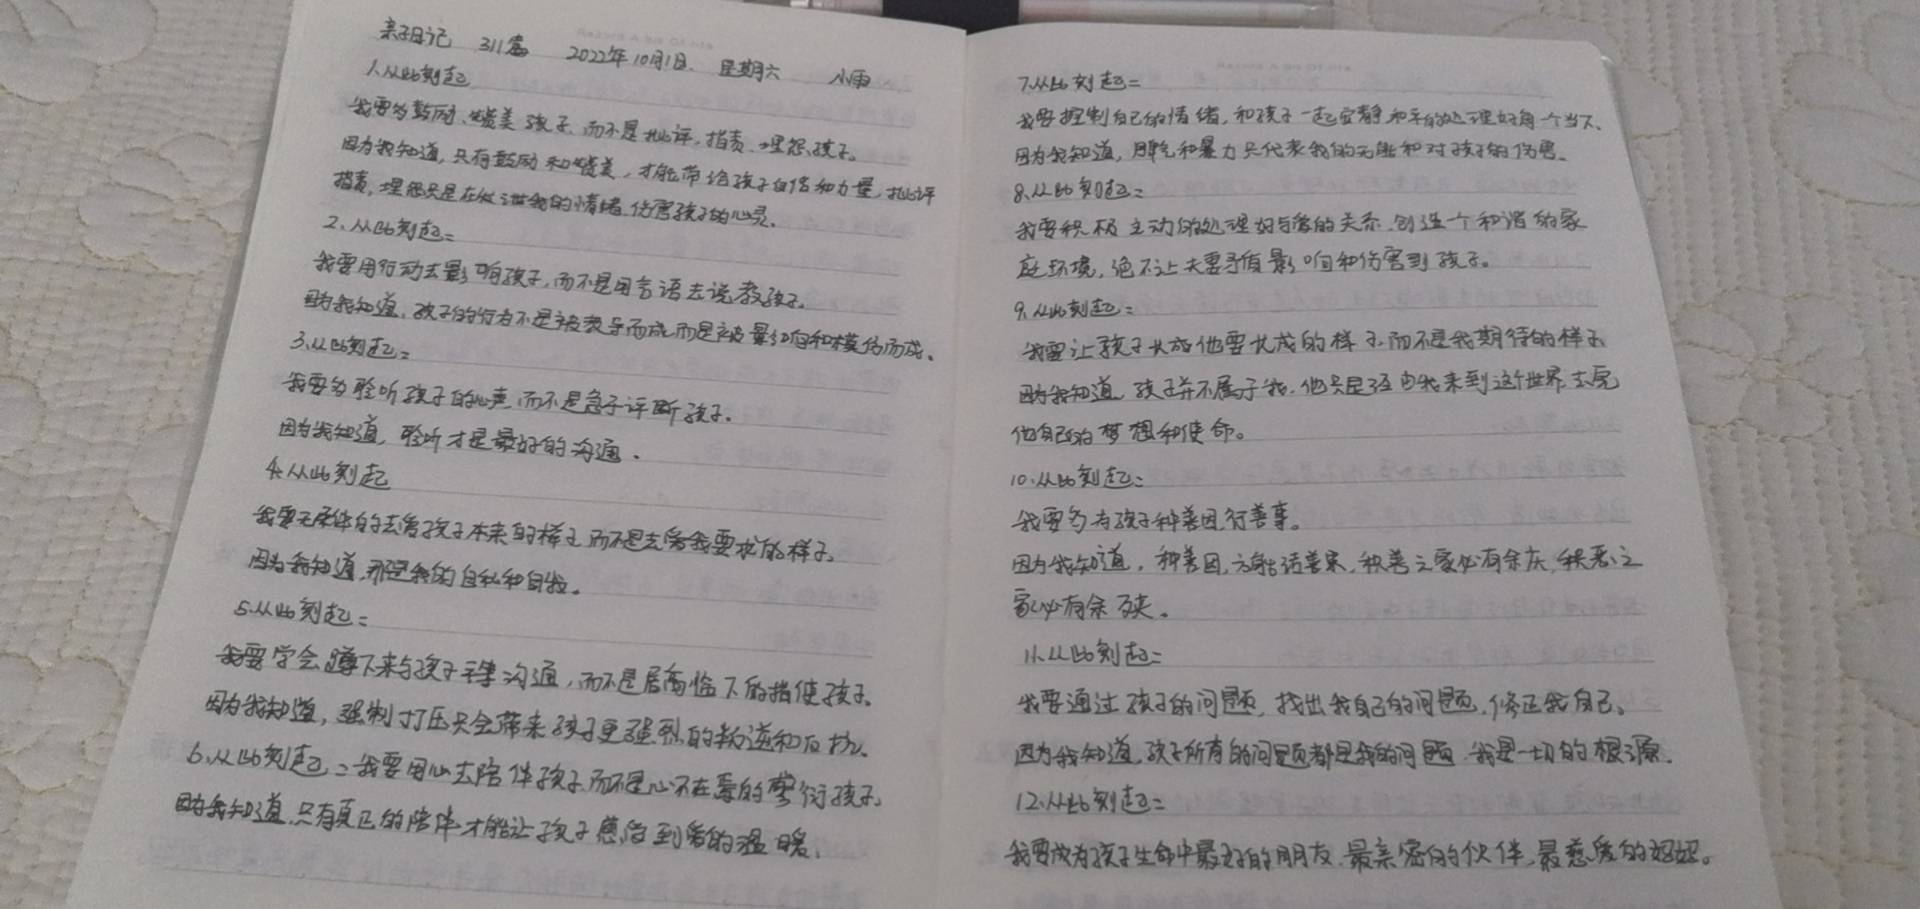 亲子日记 311篇 2022年10月1日 星期六 小雨
1.从此刻起
我要多鼓励、赞美孩子,而不是批评,指责,埋怨孩子。
因为我知道,只有鼓励和赞美,才能带给孩子自信和力量,批评
指责,埋怨只是在发泄我的情绪,伤害孩子的心灵。
2、从此刻起:
我要用行动去影响孩子,而不是用言语去说教孩子。
因为我知道,孩子的行为不是被教导而成,而是被影响和模仿而成。
3、从此刻起:
我要多聆听孩子的心声,而不是急于评断孩子。
因为我知道,聆听才是最好的沟通。
4.从此刻起
我要无条件的去爱孩子本来的样子,而不是去爱我要求的样子。
因为我知道,那是我的自私和自我。
5.从此刻起:
我要学会蹲下来与孩子平等沟通,而不是居高临下的指使孩子。
因为我知道,强制打压只会带来孩子更强烈的叛逆和反抗。
6、从此刻起:我要用心去陪伴孩子,而不是心不在焉的敷衍孩子,
因为我知道,只有真正的陪伴才能让孩子感信到爱的温暖,
7.从此刻起:
我要控制自己的情绪,和孩子一起安静和平的处理好每一个当下、
因为我知道,脾气和暴力只代表我的无能和对孩子的伤害。
8、从此刻起:
我要积极主动的处理好与爱的关系,创造一个和谐的家
庭环境,绝不让夫妻矛盾影响和伤害到孩子。
9、从此刻起:
我要让孩子长成他要长成的样子,而不是我期待的样子
因为我知道,孩子并不属于我,他只是经由我来到这个世界,去完
他自己的梦想和使命。
10、从此刻起:
我要多为孩子种善因行善事。
因为我知道,种善因,方能结善果,积善之家必有余庆,积恶之
家必有余殃。
11、从此刻起:
我要通过孩子的问题,找出我自己的问题,修正我自己。
因为我知道,孩子所有的问题都是我的问题,我是一切的根源。
12、从此刻起:
我要成为孩子生命中最好的朋友,最亲密的伙伴,最慈爱的妈妈。